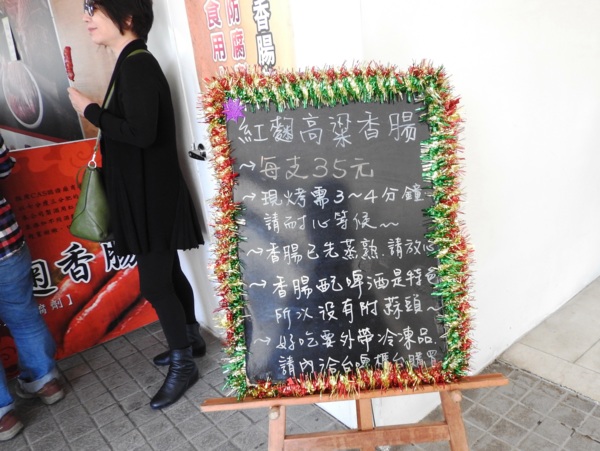 香腸
防腐
食用
紅麴高粱香腸
~每支35元
~現烤需3~4分鐘~
請耐心等候~
~香腸已先蒸熟.請放心
~香腸配啤酒是特色
所以沒有附蒜頭~
~好吃要外帶冷凍品.
請內洽台啤櫃台購買
麴香腸